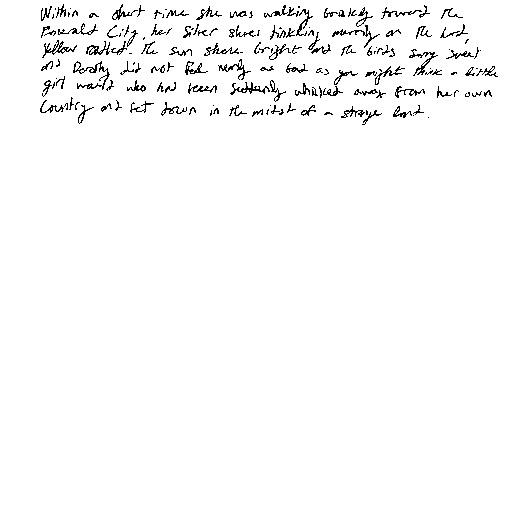 Within a short time she was walking briskly toward the
Emerald City, her Silver Shoes tinkling merrily on the hard,
yellow roadbed. The sun shone bright and the birds sang sweet
and Dorothy did not feel nearly as bad as you might think a little
girl would who had been suddenly whisked away from her own
country and set down in the midst of a strange land.